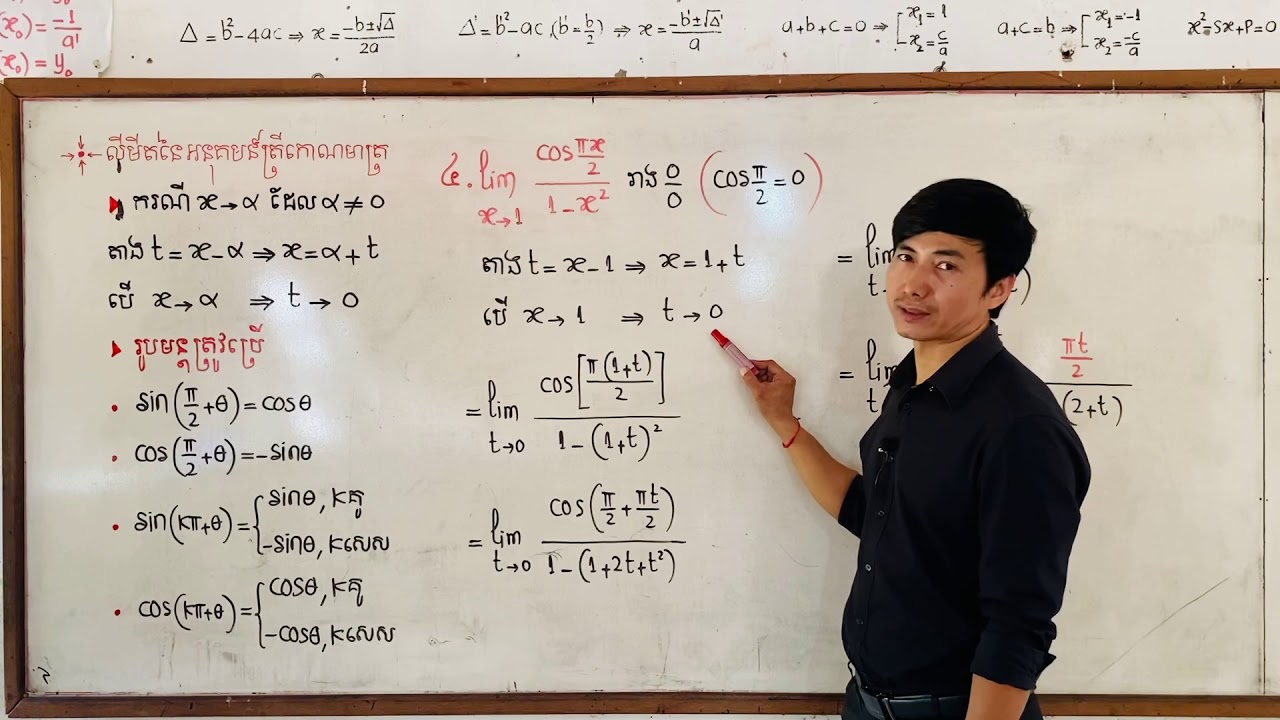 (x₀) = -1/a'
(x₀) = y₀
Δ = b² - 4ac ⇒ x = (-b ± √Δ)/2a
Δ' = b'² - ac, (b' = b/2) ⇒ x = (-b' ± √Δ')/a
a + b + c = 0 ⇒ [x₁ = 1
x₂ = c/a
a + c = b ⇒ [x₁ = -1
x₂ = -c/a
x² - Sx + P = 0
លីមីតនៃអនុគមន៍ត្រីកោណមាត្រ
ករណី x → α ដែល α ≠ 0
តាង t = x - α ⇒ x = α + t
បើ x → α ⇒ t → 0
រូបមន្តត្រូវប្រើ
• sin(π/2 + θ) = cosθ
• cos(π/2 + θ) = -sinθ
• sin(kπ + θ) = {sinθ, k គូ
-sinθ, k សេស
• cos(kπ + θ) = {cosθ, k គូ
-cosθ, k សេស
៤. lim x→1 (cos πx/2)/(1 - x²) រាង 0/0 (cos π/2 = 0)
តាង t = x - 1 ⇒ x = 1 + t
បើ x → 1 ⇒ t → 0
= lim t→0 cos[π(1 + t)/2]/(1 - (1 + t)²)
= lim t→0 cos(π/2 + πt/2)/(1 - (1 + 2t + t²))
= lim t )
= lim t πt/2 (2 + t)